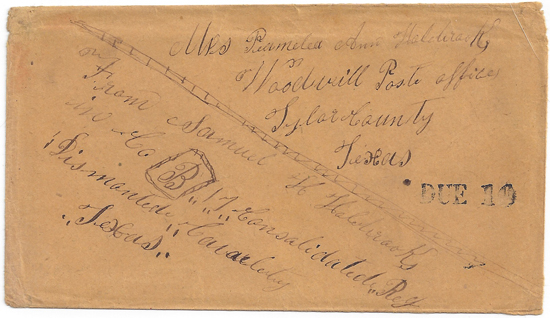 Mrs Permelea Ann Holdbrooks
Woodvill Post office
Tylor County
Texas
DUE 10
From Samuel H Holdbrooks
in Co B 17 Consalidated Reg
Dismanteded Cavaelety
Texas